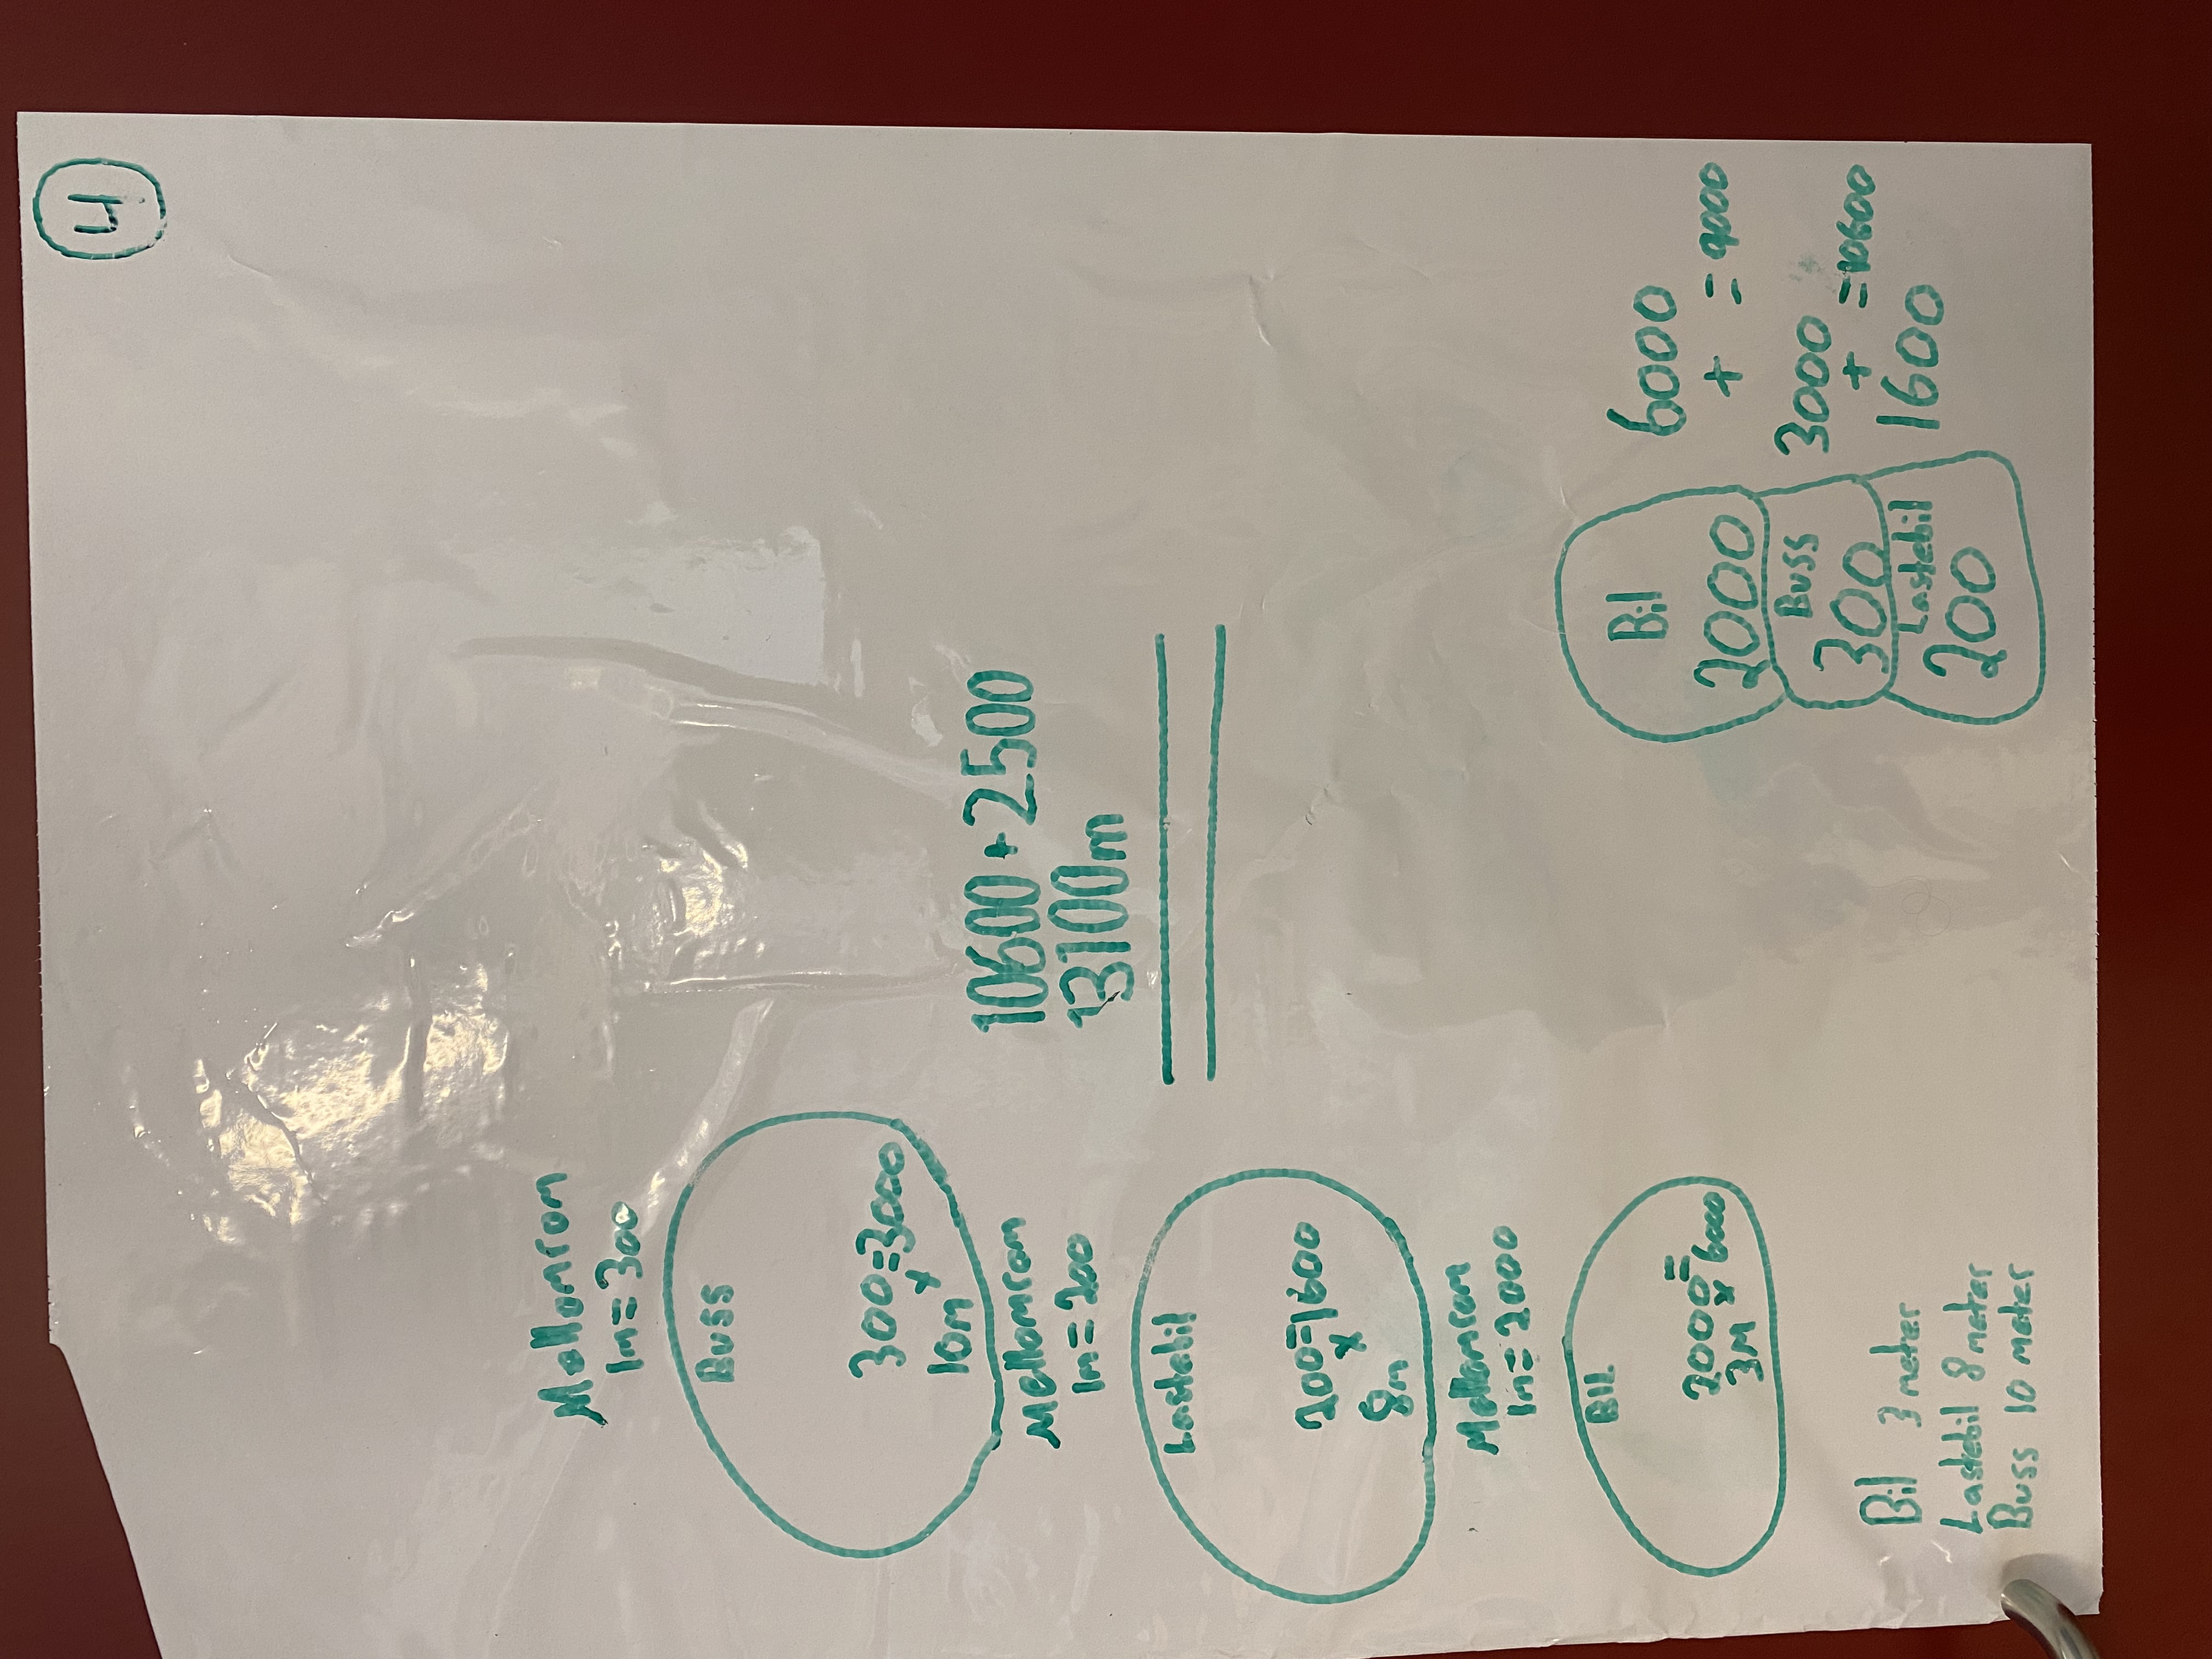 4
Mellomrom
1m=300
Buss
300=3000
x
10m
Mellomrom
1m=200
Lastebil
200=1600
x
8m
Mellomrom
1m=2000
Bil
2000=
x 6000
3m
Bil 3 meter
Lastebil 8 meter
Buss 10 meter
10600+2500
13100m
Bil
2000
Buss
300
Lastebil
200
6000
+ =9000
3000
+ =10600
1600